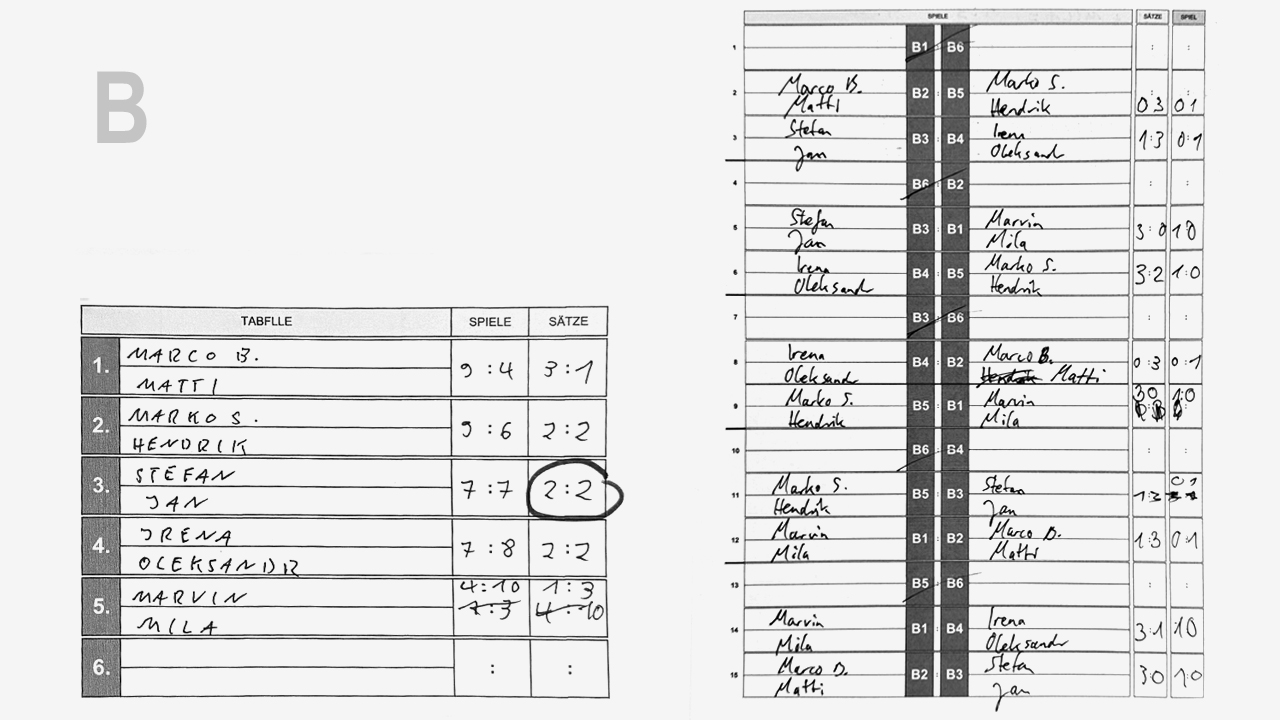 B
TABELLE SPIELE SÄTZE
1. MARCO B. 9:4 3:1
MATTI
2. MARKO S. 9:6 2:2
HENDRIK
3. STEFAN 7:7 2:2
JAN
4. IRENA 7:8 2:2
OLEKSANDR
5. MARVIN 4:10 1:3
MILA 4:10
6. : :
SPIELE SÄTZE SPIEL
1 B1 : B6 : :
2 Marco B. B2 : B5 Marko S. 0 3 0 1
Matti Hendrik
3 Stefan B3 : B4 Irena 1:3 0:1
Jan Oleksandr
4 B6 : B2 : :
5 Stefan B3 : B1 Marvin 3:0 1 0
Jan Mila
6 Irena B4 : B5 Marko S. 3:2 1:0
Oleksandr Hendrik
7 B3 : B6 : :
8 Irena B4 : B2 Marco B. 0:3 0:1
Oleksandr Hendrik Matti
9 Marko S. B5 : B1 Marvin 3 0 1:0
Hendrik Mila
10 B6 : B4 : :
11 Marko S. B5 : B3 Stefan 1:3 0 1
Hendrik Jan
12 Marvin B1 : B2 Marco B. 1:3 0:1
Mila Matti
13 B5 : B6 : :
14 Marvin B1 : B4 Irena 3:1 1 0
Mila Oleksandr
15 Marco B. B2 : B3 Stefan 3:0 1:0
Matti Jan